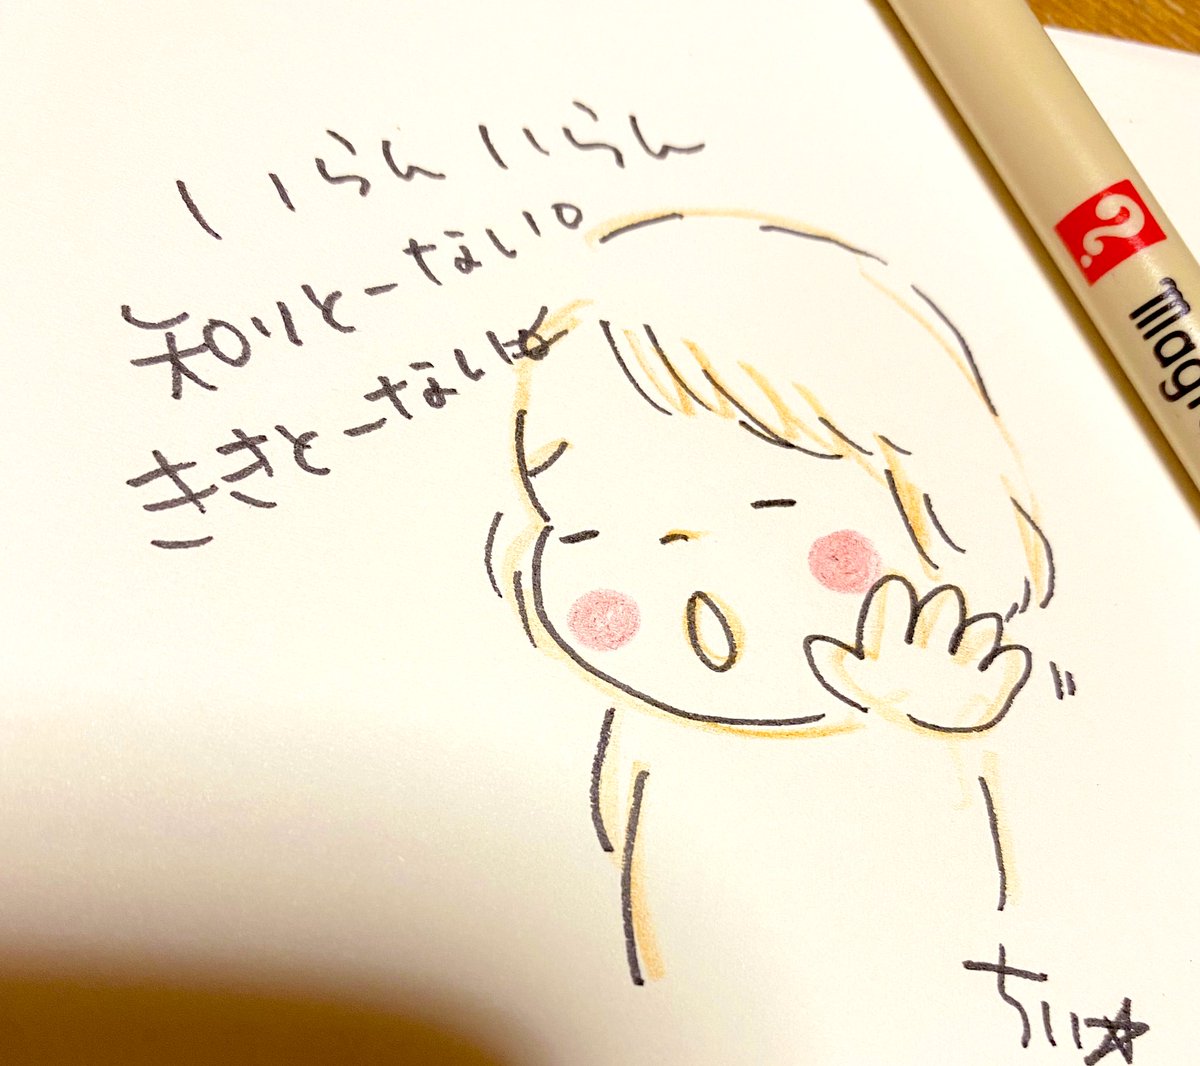 いらんいらん
知りとーない。
ききとーない。
ちい☆
mag